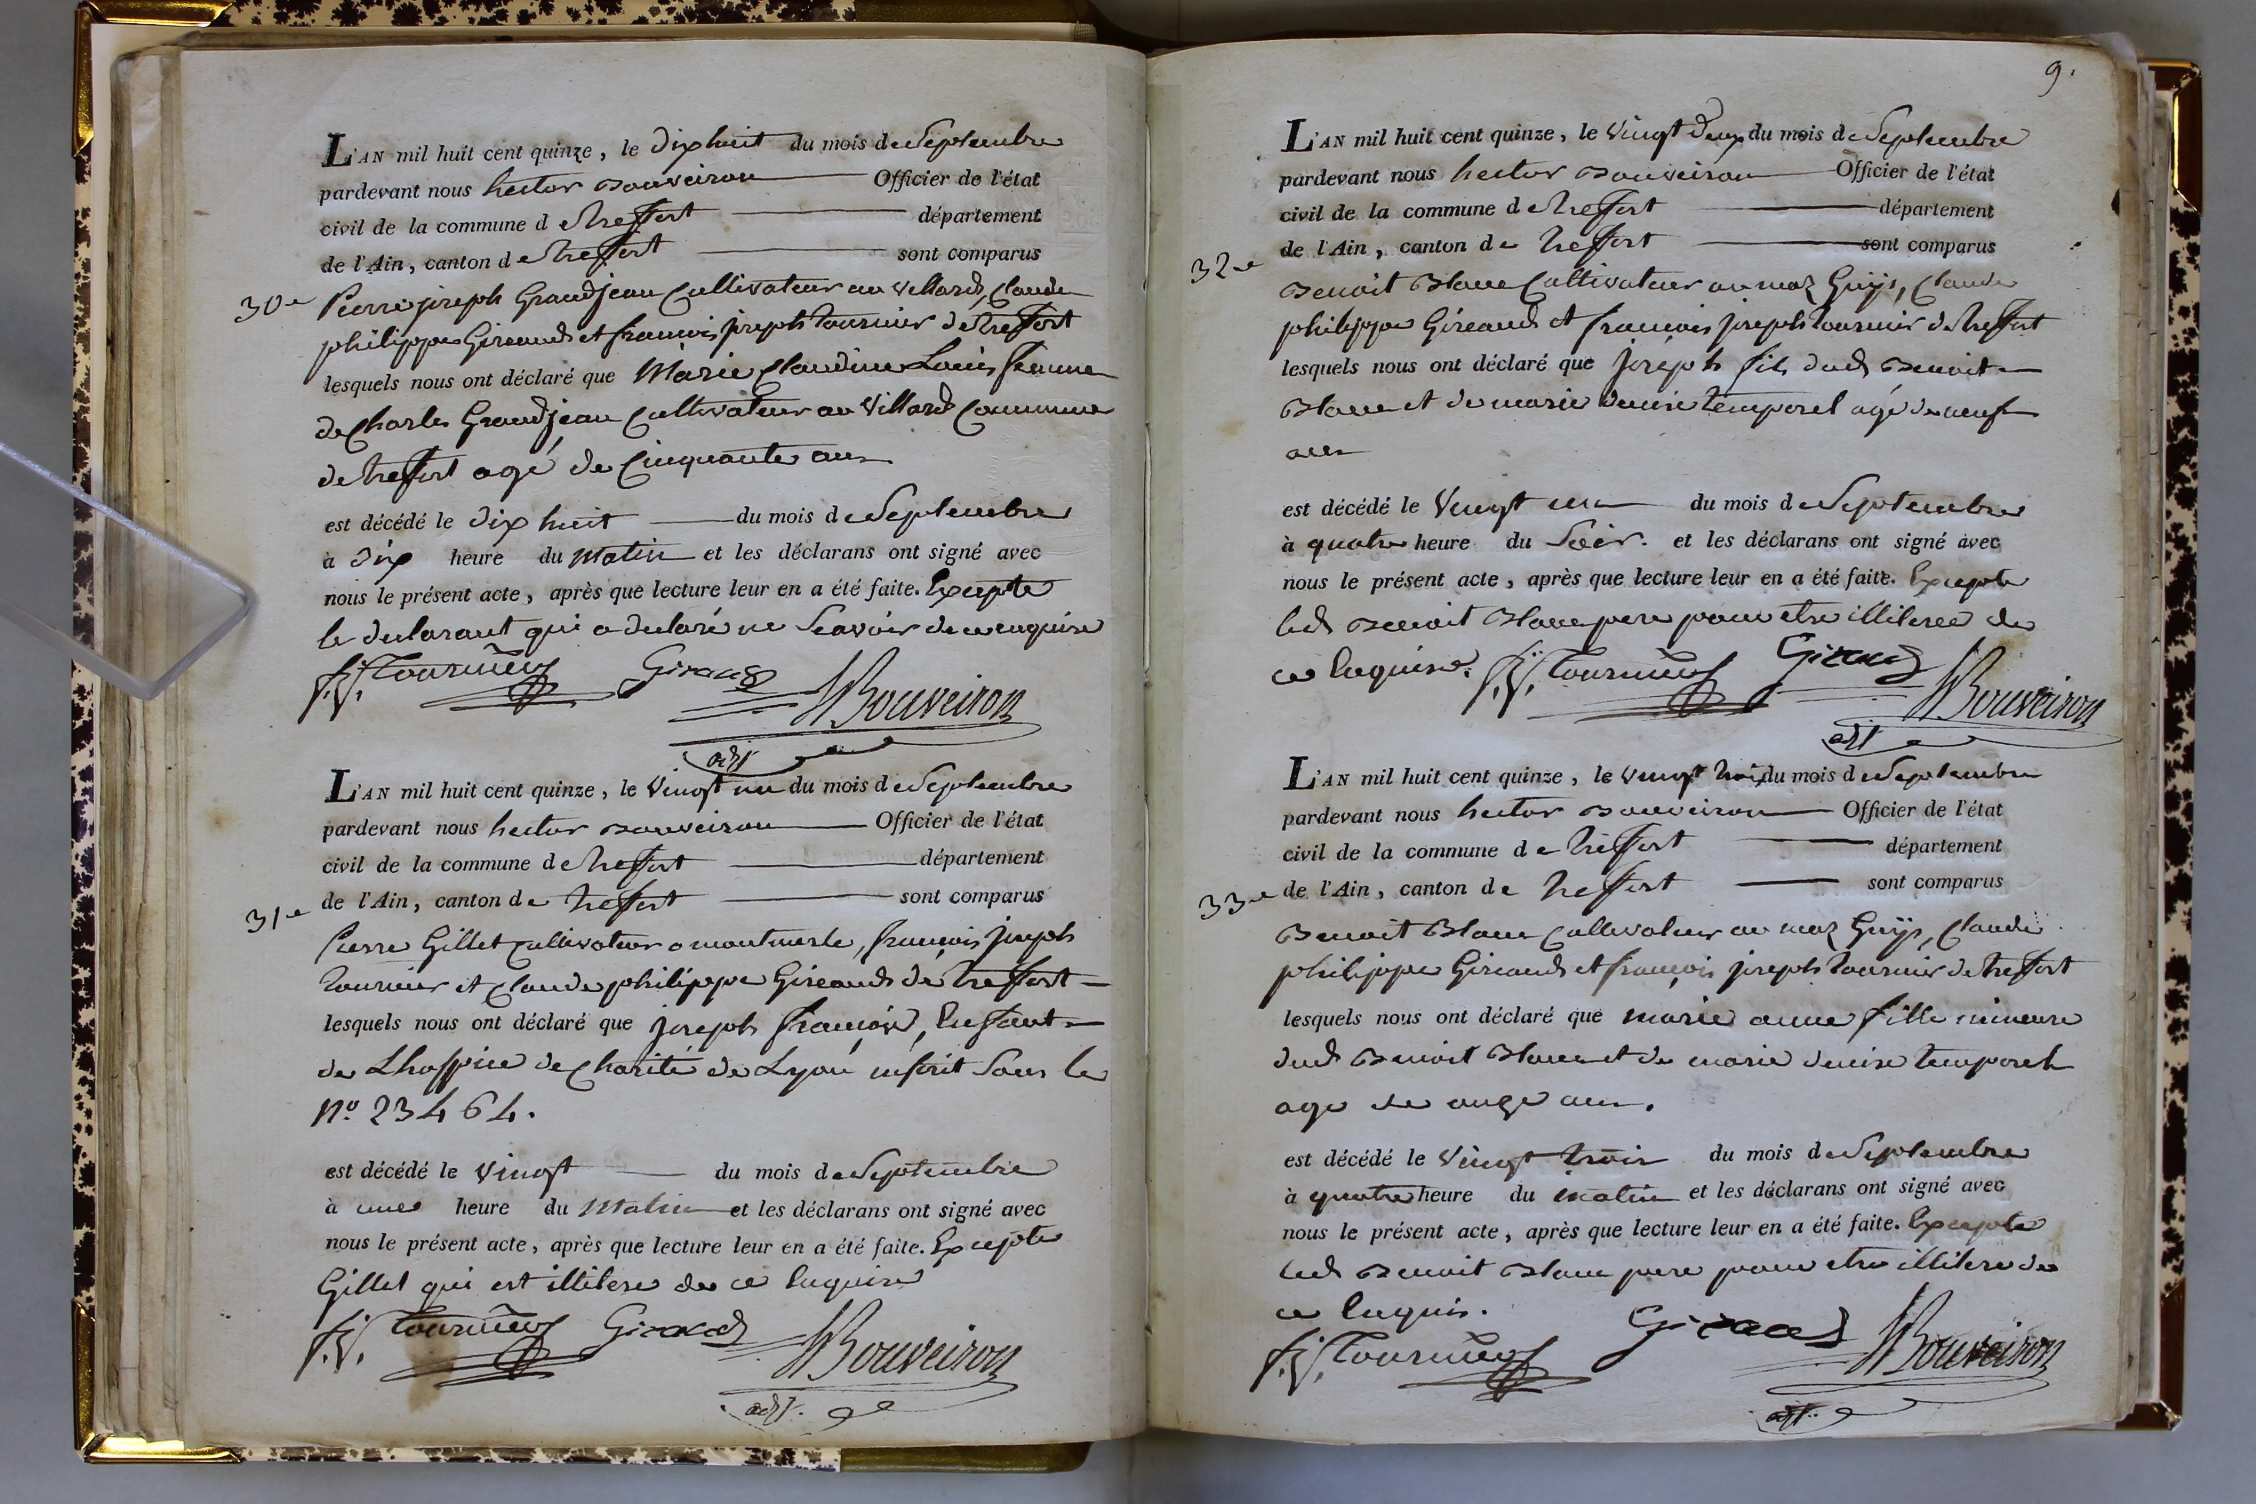 L'AN mil huit cent quinze, le dix huit du mois de Septembre
pardevant nous hector Bouveiron Officier de l'état
civil de la commune de treffort département
de l'Ain, canton de treffort sont comparus
30e Pierre joseph Grandjean Cultivateur au Villard, Claude
philippe Gireaud et francois joseph tournier de treffort
lesquels nous ont déclaré que Marie Claudine Louis femme
de Charles Grandjean Cultivateur au Villard Commune
de treffort agé de Cinquante ans
est décédé le dix huit du mois de Septembre
à dix heure du Matin et les déclarans ont signé avec
nous le présent acte, après que lecture leur en a été faite. Excepte
le declarant qui a declaré ne Scavoir de ce enquise
f. j. Tournier Giraud HBouveiron
adjt
L'AN mil huit cent quinze, le Vingt un du mois de Septembre
pardevant nous hector Bouveiron Officier de l'état
civil de la commune de treffort département
de l'Ain, canton de treffort sont comparus
31e Pierre Gillet Cultivateur a montmerle, françois joseph
tournier et Claude philippe Gireaud de treffort
lesquels nous ont déclaré que joseph françois, Enfant
de Lhospice de Charité de Lyon inscrit Sous le
No. 23464.
est décédé le Vingt du mois de Septembre
à une heure du Matin et les déclarans ont signé avec
nous le présent acte, après que lecture leur en a été faite. Excepte
Gillet qui est illitere de ce Enquise
f. j. Tournier Giraud HBouveiron
adjt.
9.
L'AN mil huit cent quinze, le Vingt deux du mois de Septembre
pardevant nous hector Bouveiron Officier de l'état
civil de la commune de treffort département
de l'Ain, canton de treffort sont comparus
32e Benoit Blanc Cultivateur au maz Guy, Claude
philippe Gireaud et françois joseph tournier de treffort
lesquels nous ont déclaré que joseph fils dud Benoit
Blanc et de marie denise temporel agé de neuf
ans
est décédé le Vingt un du mois de Septembre
à quatre heure du Soir. et les déclarans ont signé avec
nous le présent acte, après que lecture leur en a été faite. Excepte
led Benoit Blanc pere pour etre illiteree de
ce Enquise. f. j. Tournier Giraud HBouveiron
adjt
L'AN mil huit cent quinze, le Vingt trois du mois de Septembre
pardevant nous hector Bouveiron Officier de l'état
civil de la commune de treffort département
33e de l'Ain, canton de treffort sont comparus
Benoit Blanc Cultivateur au maz Guy, Claude
philippe Gireaud et françois joseph tournier de treffort
lesquels nous ont déclaré que marie anne fille mineure
dud Benoit Blanc et de marie denise temporel
age de onze ans.
est décédé le Vingt trois du mois de Septembre
à quatre heure du matin et les déclarans ont signé avec
nous le présent acte, après que lecture leur en a été faite. Excepte
led Benoit Blanc pere pour etre illitere de
ce Enquis.
f. j. Tournier Giraud HBouveiron
adjt.